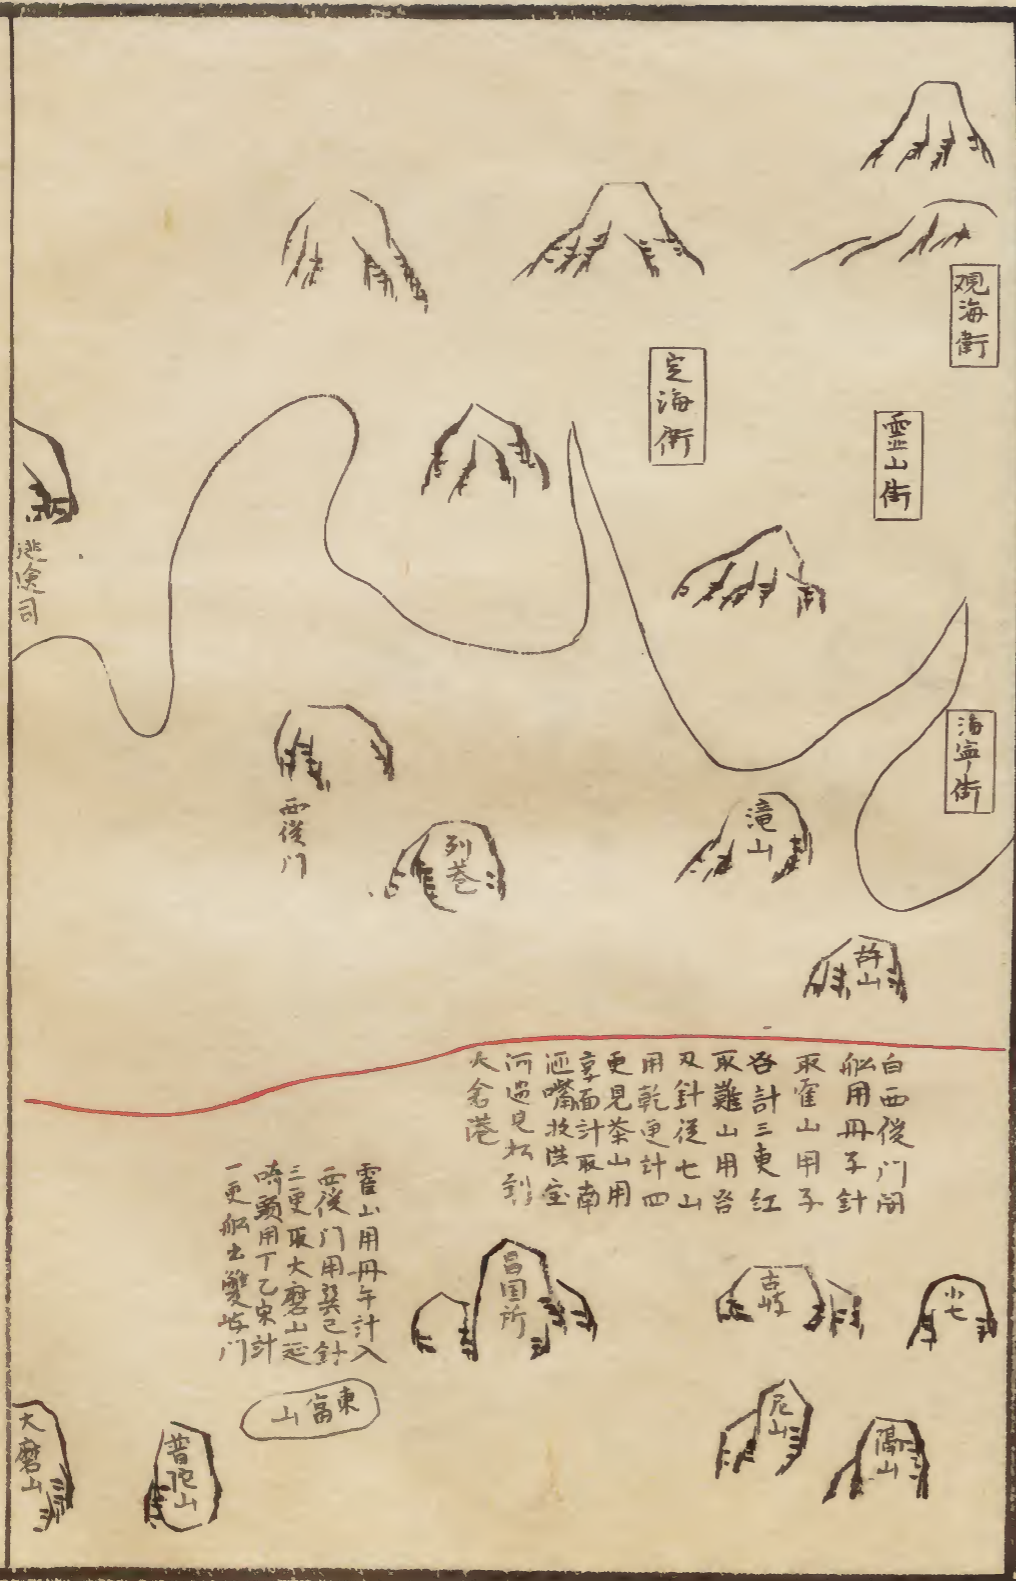 观海衛
定海衛
霊山衛
海寧衛
逃𡩋司
西後门
列巷
滝山
許山
白西後门開
舡用丹子針
取霍山用子
癸計三更紅
取難山用癸
丑針従七山
用乾更計四
更見茶山用
享面計取南
洭嘴收洪宝
河邊見松到
大倉港
霍山用丹午計入
西後门用巽已針
三更取大磨山延
崎頭用丁乙宋計
一更舡出雙嶼门
昌国所
古岐
小七
東富山
尼山
隝山
大磨山
普陀山